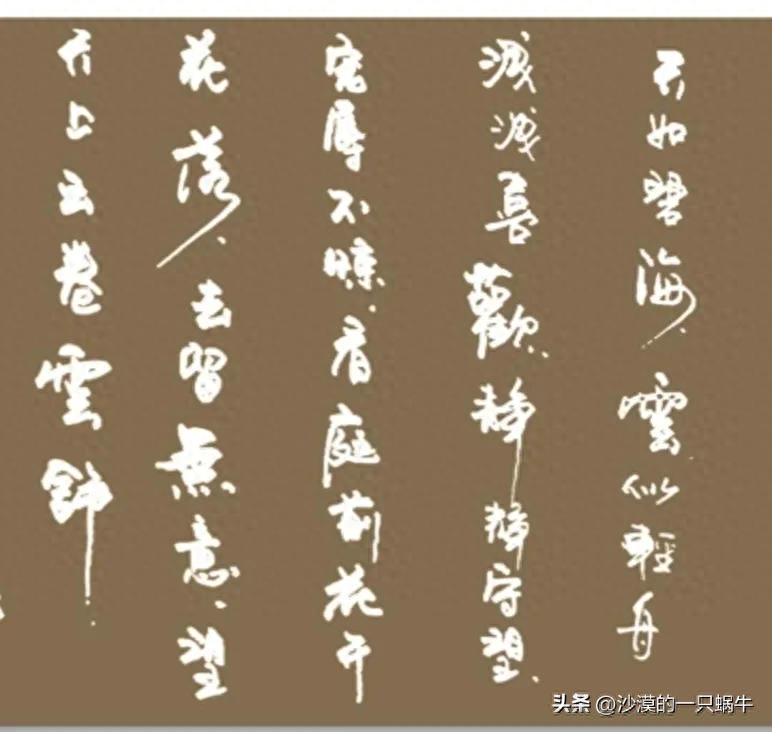 天如碧海雲似輕舟
浅浅喜歡静静守望
宠辱不惊看庭前花开
花落去留無意望
天上云卷雲舒
头条 @沙漠的一只蜗牛